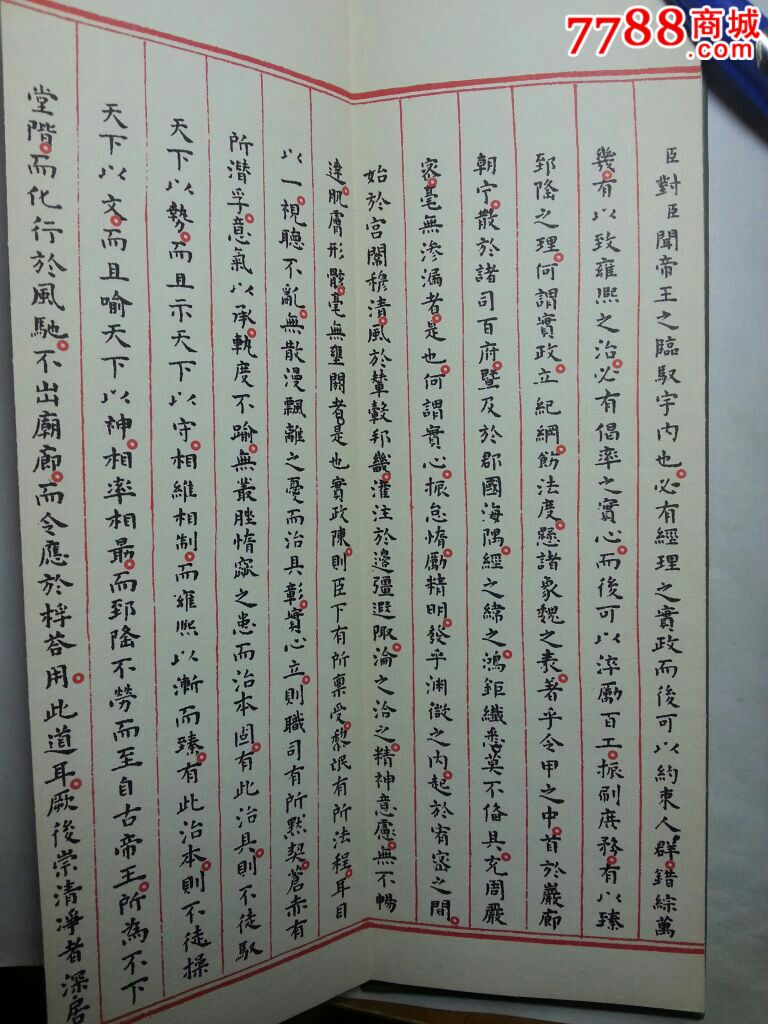 7788商城
.com
臣對臣聞帝王之臨馭宇內也必有經理之實政而後可以約束人群錯綜萬
幾有以致雍熙之治必有倡率之實心而後可以淬勵百工振刷庶務有以臻
郅隆之理何謂實政立紀綱飭法度懸諸象魏之表著乎令甲之中首於巖廊
朝宁散於諸司百府暨及於郡國海隅經之緯之鴻鉅纖悉莫不備具充周嚴
密毫無滲漏者是也何謂實心振怠惰勵精明發乎淵微之內起於宥密之間
始於宮闈穆清風於輦轂邦畿灌注於邊疆遐陬淪之洽之精神意慮無不暢
達肌膚形骸毫無壅閼者是也實政陳則臣下有所稟受黎氓有所法程耳目
以一視聽不亂無散漫飄離之憂而治具彰實心立則職司有所默契蒼赤有
所潛孚意氣以承軌度不踰無叢脞惰窳之患而治本固有此治具則不徒馭
天下以勢而且示天下以守相維相制而雍熙以漸而臻有此治本則不徒操
天下以文而且喻天下以神相率相勗而郅隆不勞而至自古帝王所為不下
堂階而化行於風馳不出廟廊而令應於桴答用此道耳厥後崇清凈者深居